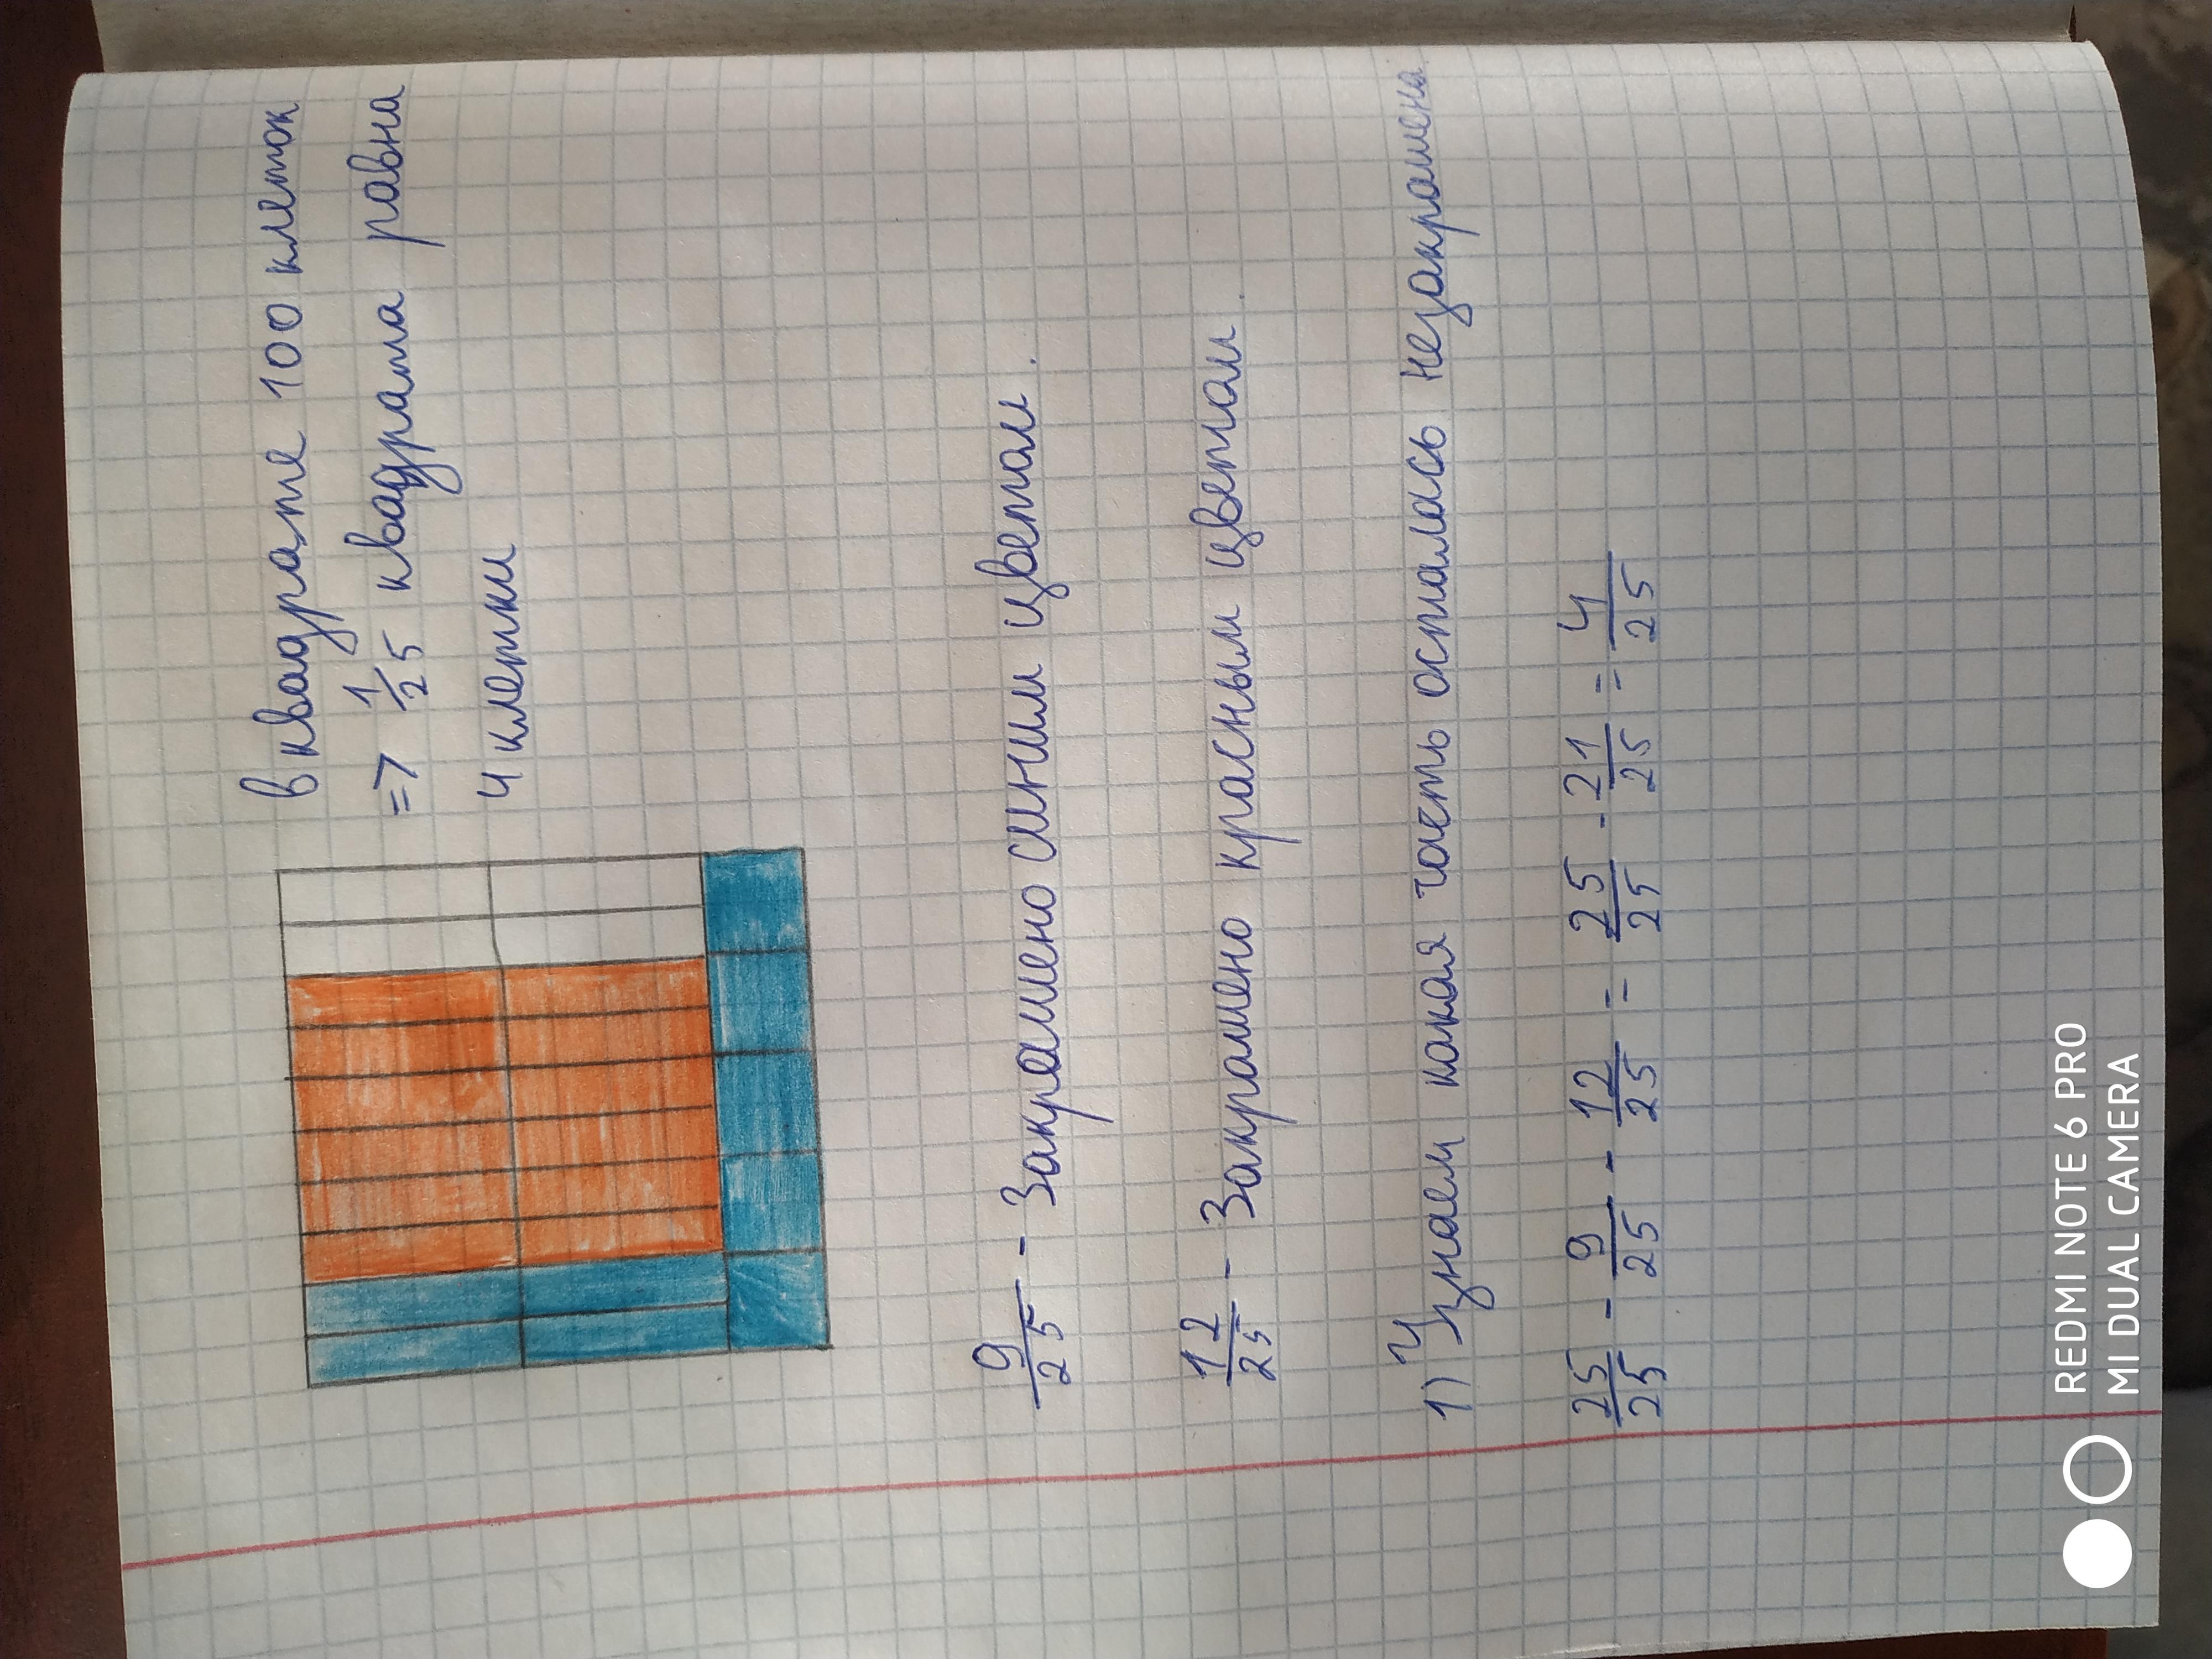 в квадрате 100 клеток
=> 1/25 квадрата равна
4 клетки
9/25 - Закрашено синим цветом.
12/25 - Закрашено красным цветом.
1) Узнаем какая часть осталась незакрашена
25/25 - 9/25 - 12/25 = 25/25 - 21/25 = 4/25
REDMI NOTE 6 PRO
MI DUAL CAMERA